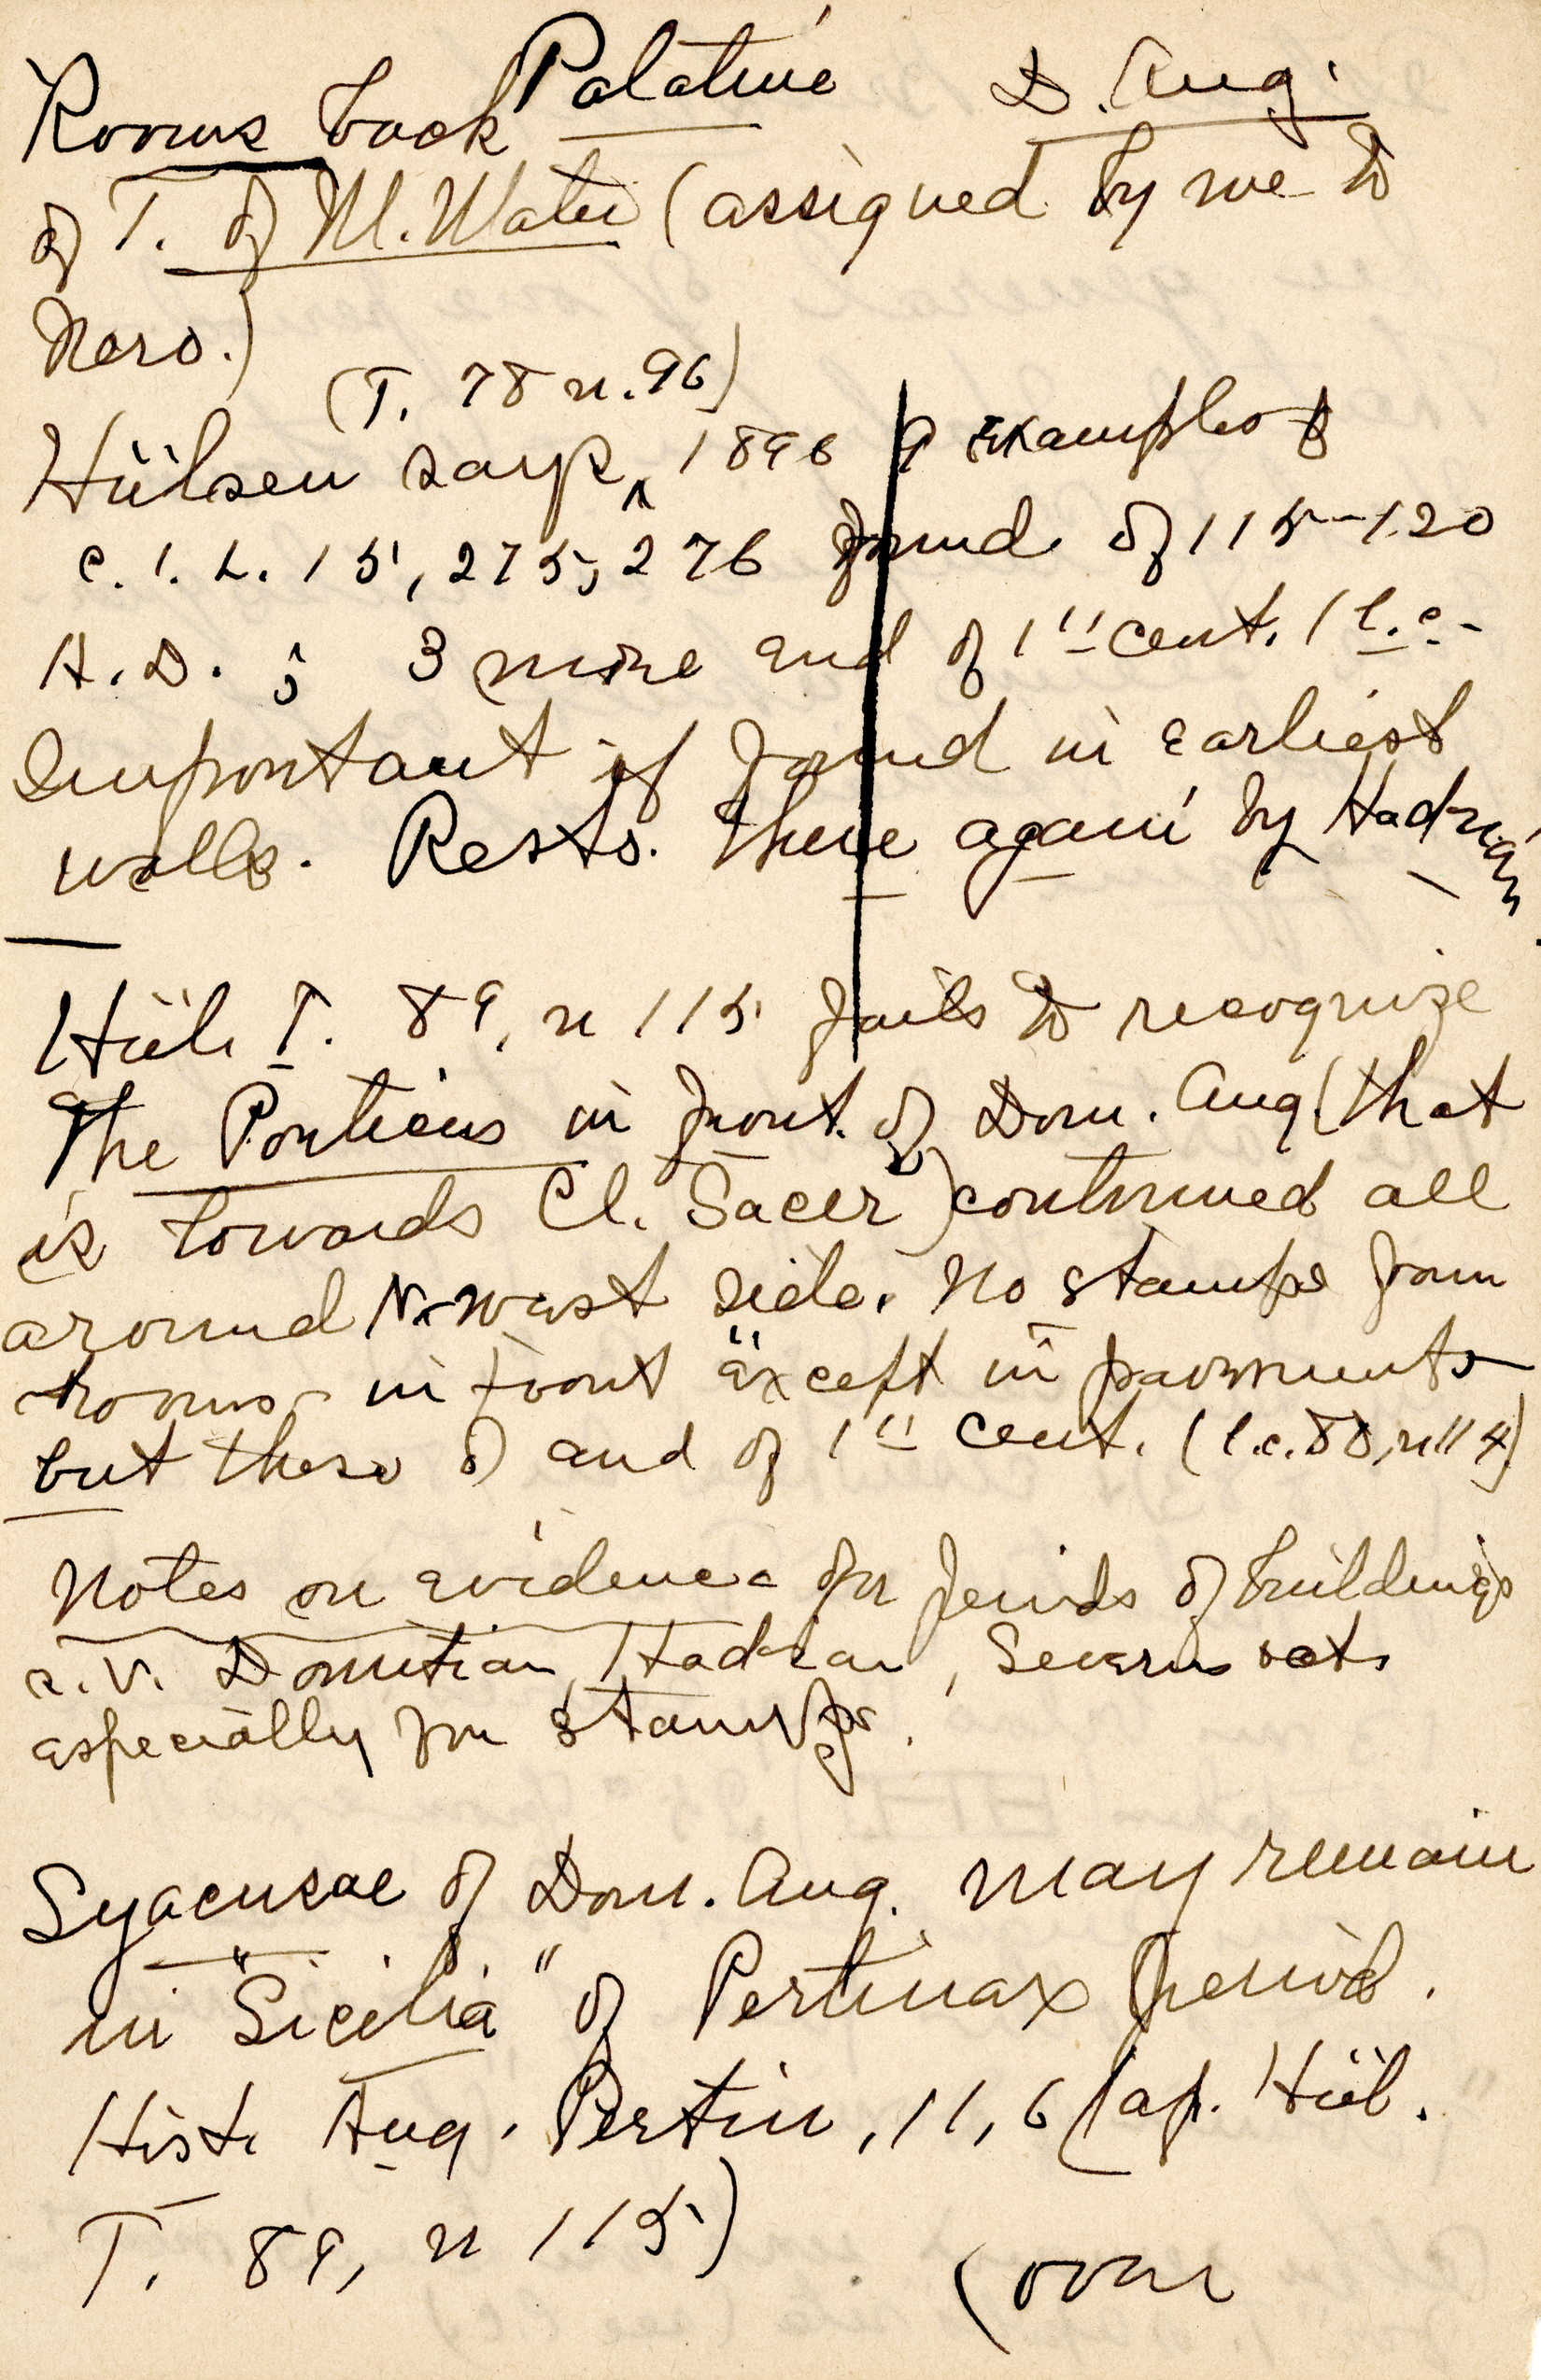 Palatine D. Aug.
Rooms back
of T. of M. Mater (assigned by me to
Nero.)
(T. 78 n. 96)
Hülsen says, 1896 9 examples of
C.I.L. 15, 275, 276 found of 115-120
A.D.; 3 more end of 1st cent. l.c.
Important if found in earliest
walls. Rests. there again by Hadrian
Hül. T. 89, n 115 fails to recognize
The Porticus in front of Dom. Aug (that
is towards Cl. Sacer) continued all
around N-west side. No stamps from
rooms in front except in pavements
but these of end of 1st cent. (l.c. 88, n 114)
Notes on evidence for periods of buildings
s.v. Domitian, Hadrian, Severus etc
especially for stamps.
Syacusae of Dom. Aug. may remain
in "Sicilia" of Pertinax period.
Hist. Aug. Pertin, 11, 6 (ap. Hül.
T. 89, n 115)
(over